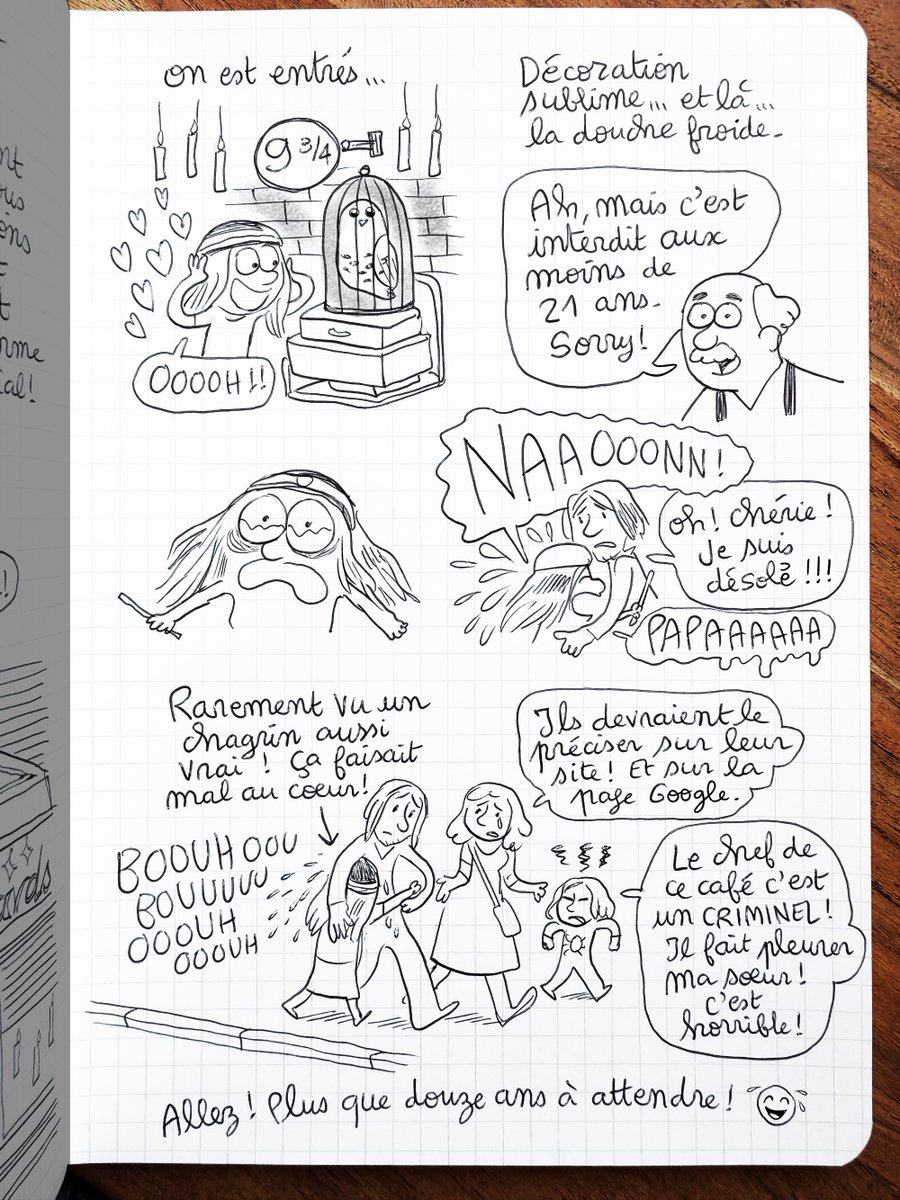 on est entrés...
Décoration
sublime... et là...
la douche froide.
9 3/4
Ah, mais c'est
interdit aux
moins de
21 ans.
Sorry!
OOOOH!!
NAAOOONN!
oh! chérie!
Je suis
désolé!!!
PAPAAAAAA
Rarement vu un
chagrin aussi
vrai! ça faisait
mal au coeur!
Ils devraient le
préciser sur leur
site! Et sur la
page Google.
BOOUHOOU
BOUUUUU
OOOUH
OOOUH
Le chef de
ce café c'est
un CRIMINEL!
Il fait pleurer
ma soeur!
c'est
horrible!
Allez! Plus que douze ans à attendre!